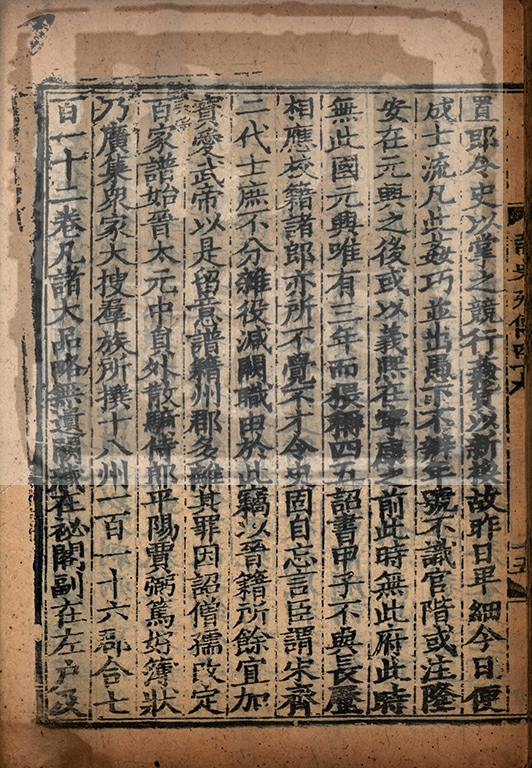 置郎令史以掌之競行姦貨以新換故昨日卑細今日便
成士流凡此姦巧並出愚下不辨年號不識官階或注隆
安在元興之後或以義熙在寧康之前此時無此府此時
無此國元興唯有三年而猥稱四五詔書甲子不與長曆
相應校籍諸郎亦所不覺不才令史固自忘言臣謂宋齊
二代士庶不分雜役減闕職由於此竊以晉籍所餘宜加
寶愛武帝以是留意譜籍州郡多離其罪因詔僧孺改定
百家譜始晉太元中員外散騎侍郎平陽賈弼篤好簿狀
乃廣集衆家大搜羣族所撰十八州一百一十六郡合七
百一十二卷凡諸大品略無遺闕藏在祕閣副在左户及